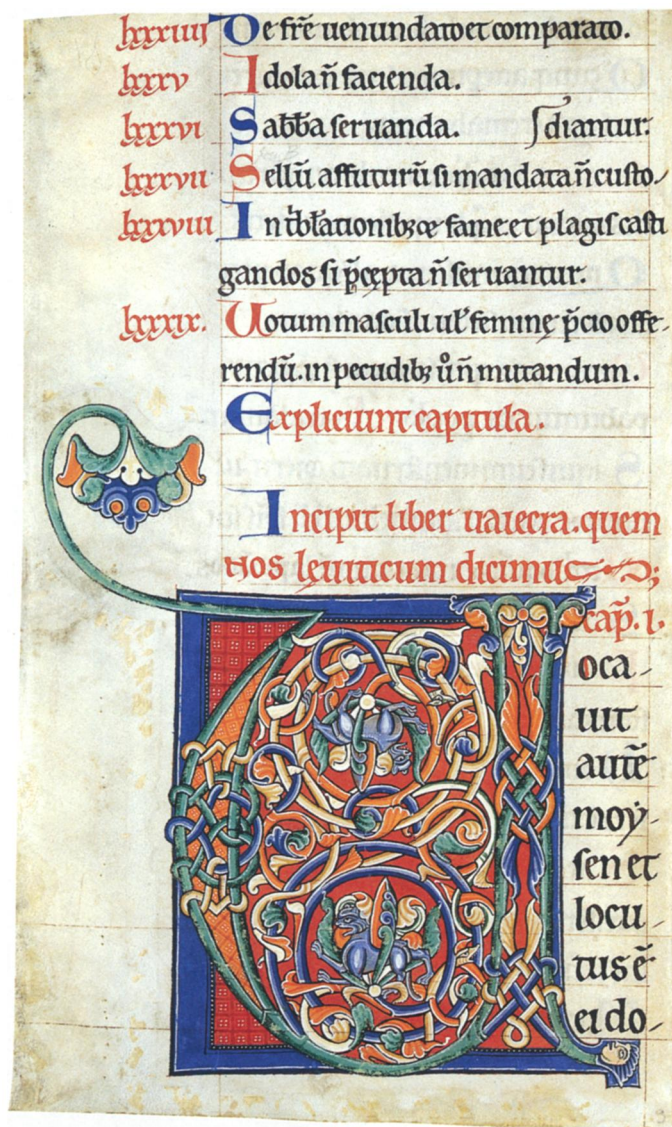 lxxxiiii De fr̄e uenundato et comparato.
lxxxv Idola n̄ facienda.
lxxxvi Sab̄b̄a seruanda. diantur.
lxxxvii Bellū affuturū si mandata n̄ custo-
lxxxviii In t̄b̄lationibꝫ fame et plagis casti
gandos si p̄cepta n̄ seruantur.
lxxxix. Uotum masculi ul̄ feminę p̄cio offe-
rendū. in pecudibꝫ ů n̄ mutandum.
Expliciunt capitula.
Incipit liber uaiecra. quem
nos leuiticum dicimus;
cap̄. I.
V oca-
uit
autē
moy-
sen et
locu-
tus ē
ei do-